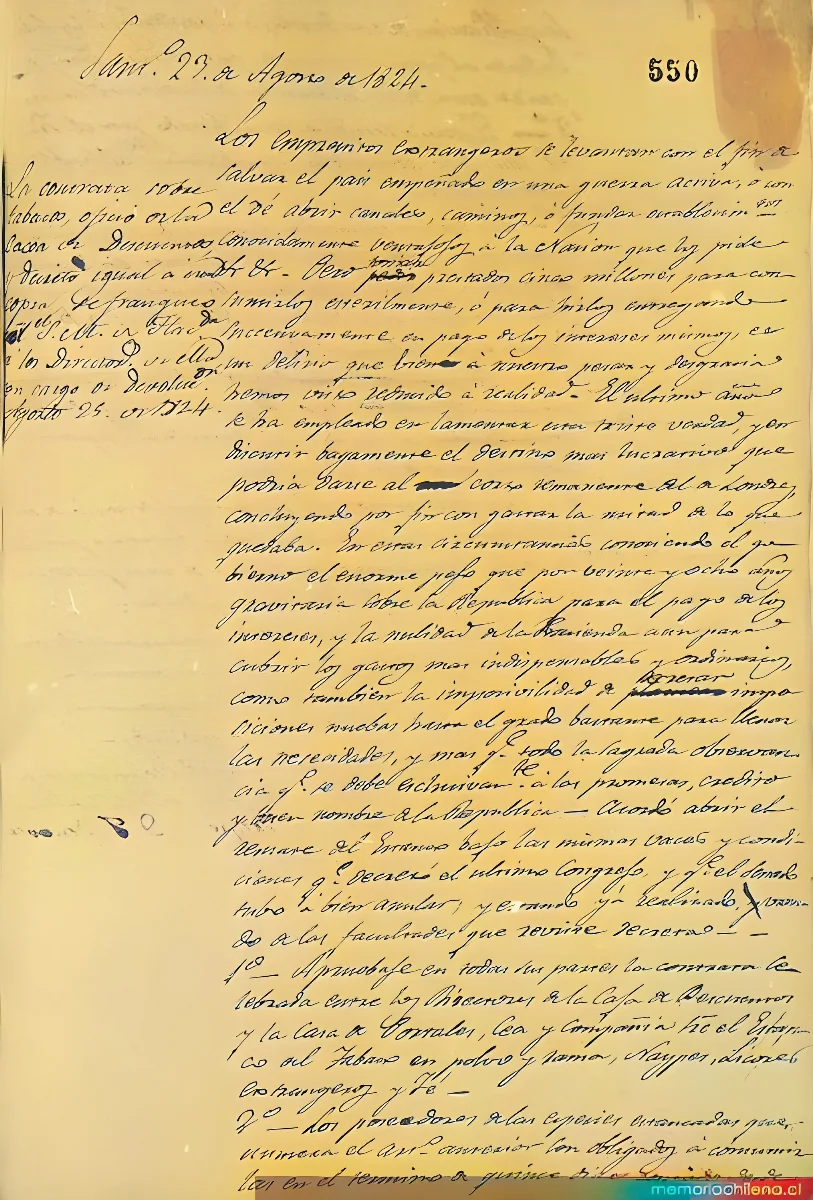 Sant.º 23. de Agosto de 1824.
550
Los emprestitos extrangeros se levantan con el fin de
salvar el pais empeñado en una guerra activa, ó con
el de abrir canales, caminos, ó fundar establecim.tos
conocidamente ventajosos á la Nacion que los pide
&. &. - Pero tomar prestados cinco millones para con
sumirlos esterilmente, ó para irlos entregando
succesivamente en pago de los intereses mismos, es
un delirio que bien á nuestro pesar y desgracia
hemos visto reducido á realidad. - El ultimo año
se ha empleado en lamentar esta triste verdad, y en
discutir bagamente el destino mas lucrativo que
podria darse al corto remanente del de Londres,
concluyendo por fin con gastar la mitad de lo que
quedaba. En estas circunstancias conociendo el go
bierno el enorme peso que por veinte y ocho años
gravitaria sobre la Republica para el pago de los
intereses, y la nulidad de la Hacienda aun para
cubrir los gastos mas indispensables y ordinarios,
como tambien la imposivilidad de decretar impo
siciones nuebas hasta el grado bastante para llenar
las necesidades, y mas q.e todo la sagrada observan
cia q.e se debe esclusivam.te á las promesas, credito
y buen nombre de la Republica — Acordó abrir el
remate del Estanco bajo las mismas vases y condi-
ciones q.e decretó el ultimo Congreso, y q.e el Senado
tubo á bien anular; y estando yá realizado, y usan
do de las facultades que reviste decreta — —
1º — Apruebase en todas sus partes la contrata ce
lebrada entre los Directores de la Caja de Descuentos
y la Casa de Portales, Cea y Compañia sre el Estan-
co del Tabaco en polvo y rama, Naypes, Licores
extrangeros y Té —
2º — Los poseedores de las especies estancadas que e-
numera el art.º anterior son obligados á consumir
las en el termino de quince dias
La contrata sobre
tabacos, oficio de la
Caxa de Descuentos
y decreto igual á
copia se franqueó
S. M. de Haz.da
á los Director.s de ella
en cargo de devoluc.on
Agosto 25. de 1824.
memoriachilena.cl